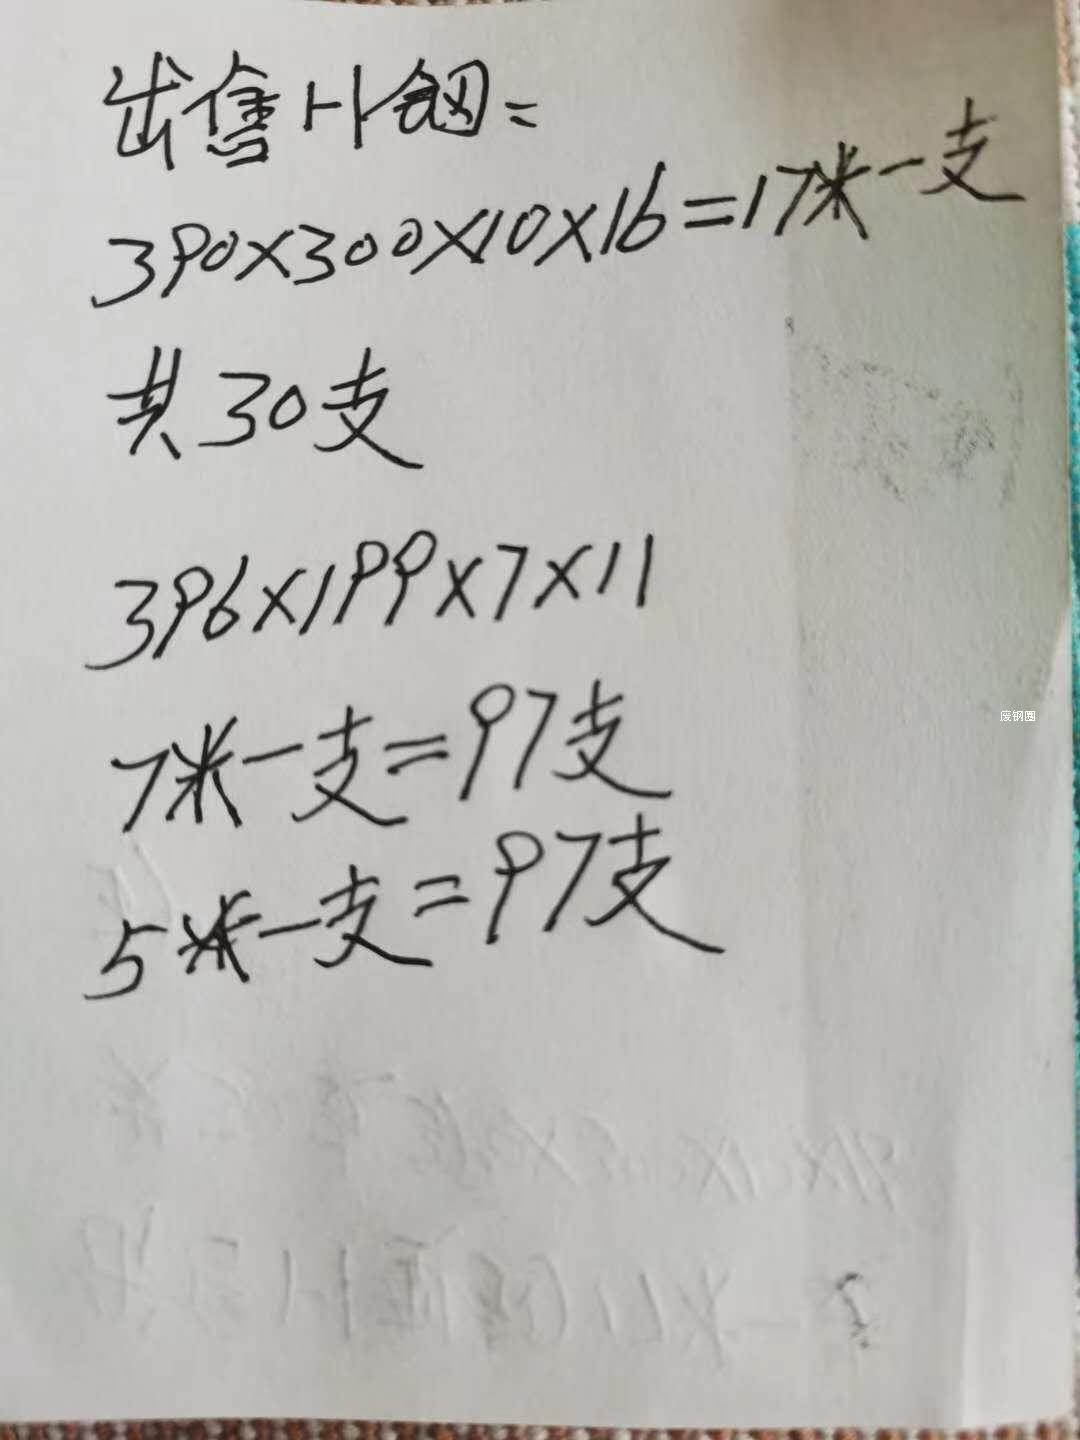 出售H钢=
390×300×10×16=17米一支
共30支
396×199×7×11
7米一支=97支
5米一支=97支
废钢圈